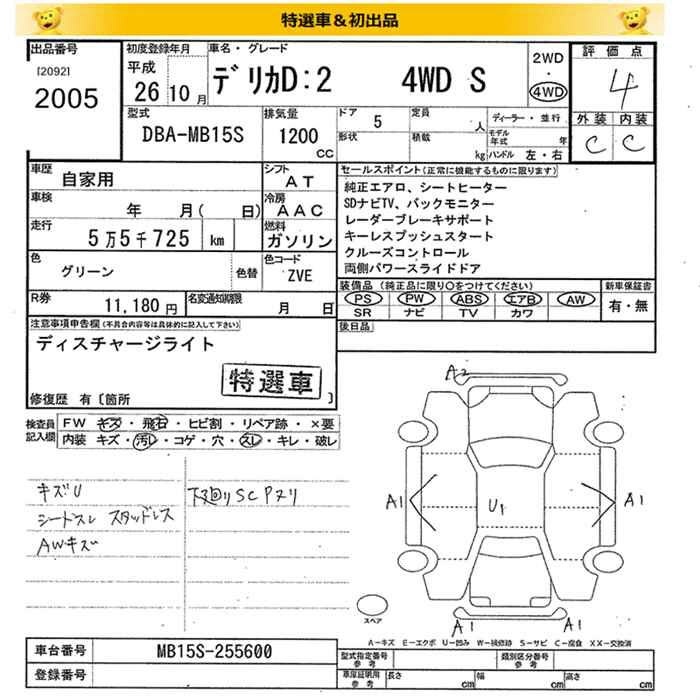 特選車&初出品
出品番号
[2092]
2005
初度登録年月
平成
26 10 月
車名・グレード
デリカD:2 4WD S
2WD
・
4WD
評価点
4
外装 内装
C C
型式
DBA-MB15S
排気量
1200
CC
ドア 5
形状
定員 人
積載 kg
ディーラー・並行
モデル年式 年
ハンドル 左・右
車歴
自家用
シフト
AT
車検
年 月( 日)
冷房
AAC
走行
5万5千725 km
燃料
ガソリン
色
グリーン
色替
色コード
ZVE
R券
11,180 円
名変通知期限
月 日
セールスポイント(正常に機能するものに限ります)
純正エアロ、シートヒーター
SDナビTV、バックモニター
レーダーブレーキサポート
キーレスプッシュスタート
クルーズコントロール
両側パワースライドドア
装備品(純正品に限り○をつけてください)
PS PW ABS エアB AW
SR ナビ TV カワ
新車保証書
有・無
後日品
注意事項申告欄(不具合内容等は具体的に記入して下さい)
ディスチャージライト
特選車
修復歴 有〔箇所 〕
検査員
記入欄
FW キズ・飛石・ヒビ割・リペア跡・×要
内装 キズ・汚レ・コゲ・穴・スレ・キレ・破レ
キズU
シートスレ スタッドレス
AWキズ
下廻りSCPヌリ
A2
A1
U1
A1
A1
A1
スペア
A-キズ E-エクボ U-凹み W-補修跡 S-サビ C-腐食 XX-交換済
車台番号
MB15S-255600
登録番号
型式指定番号
参考
類別区分番号
参考
車庫証明用
参考
長さ cm
幅 cm
高さ cm